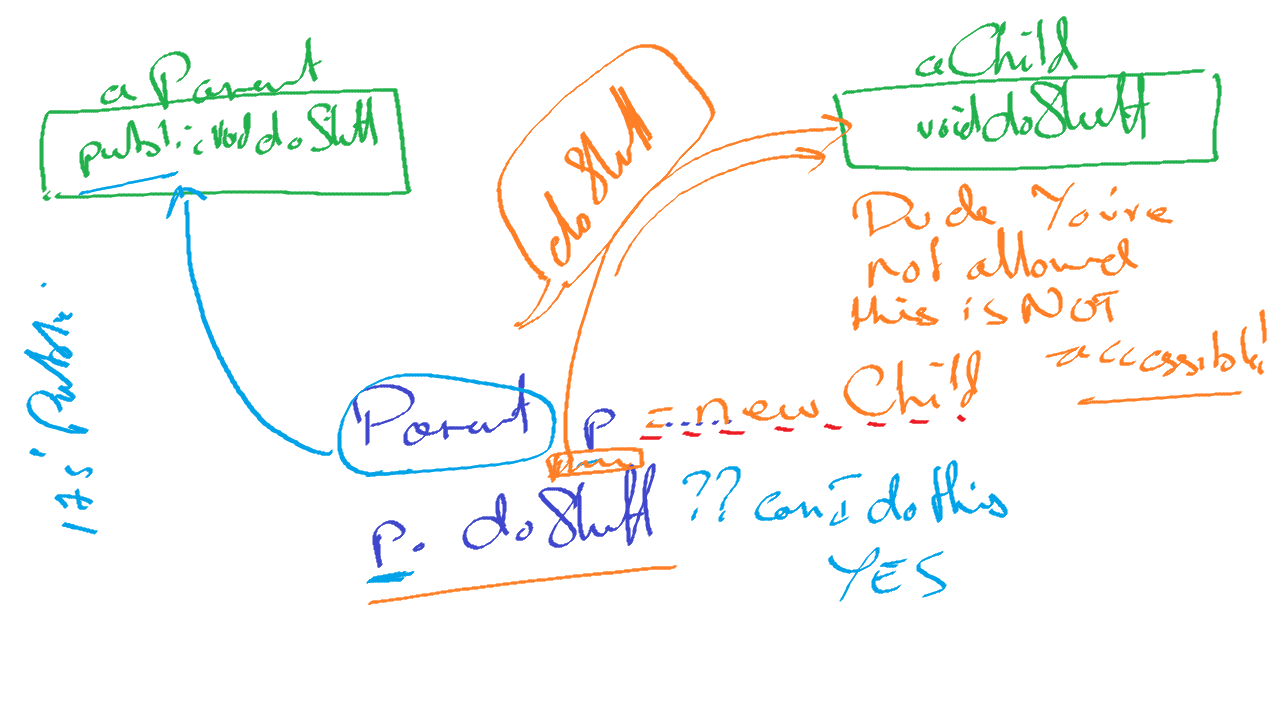 aParent
public void doStuff
aChild
void doStuff
doStuff
Dude You're
not allowed
this is NOT
accessible!
it's Public
Parent p = new Child
p. doStuff ?? can I do this
YES